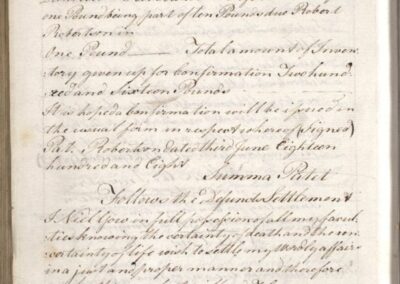 one Pound being part of ten Pounds due Robert
Robertson in
One Pound Total amount of Inven
tory given up for Confirmation Two hund
red and Sixteen Pounds
It is hoped a Confirmation will be issued in
the usual form in respect whereof (Signed)
Pat. Robertson dated third June Eighteen
hundred and Eight
Summa Patet
Follows the Defuncts Settlement
I Niel Gow in full possession of all my facul
ties knowing the certainty of death and the un
certainty of life wish to settle my wordly affairs
in a just and proper manner and therefore